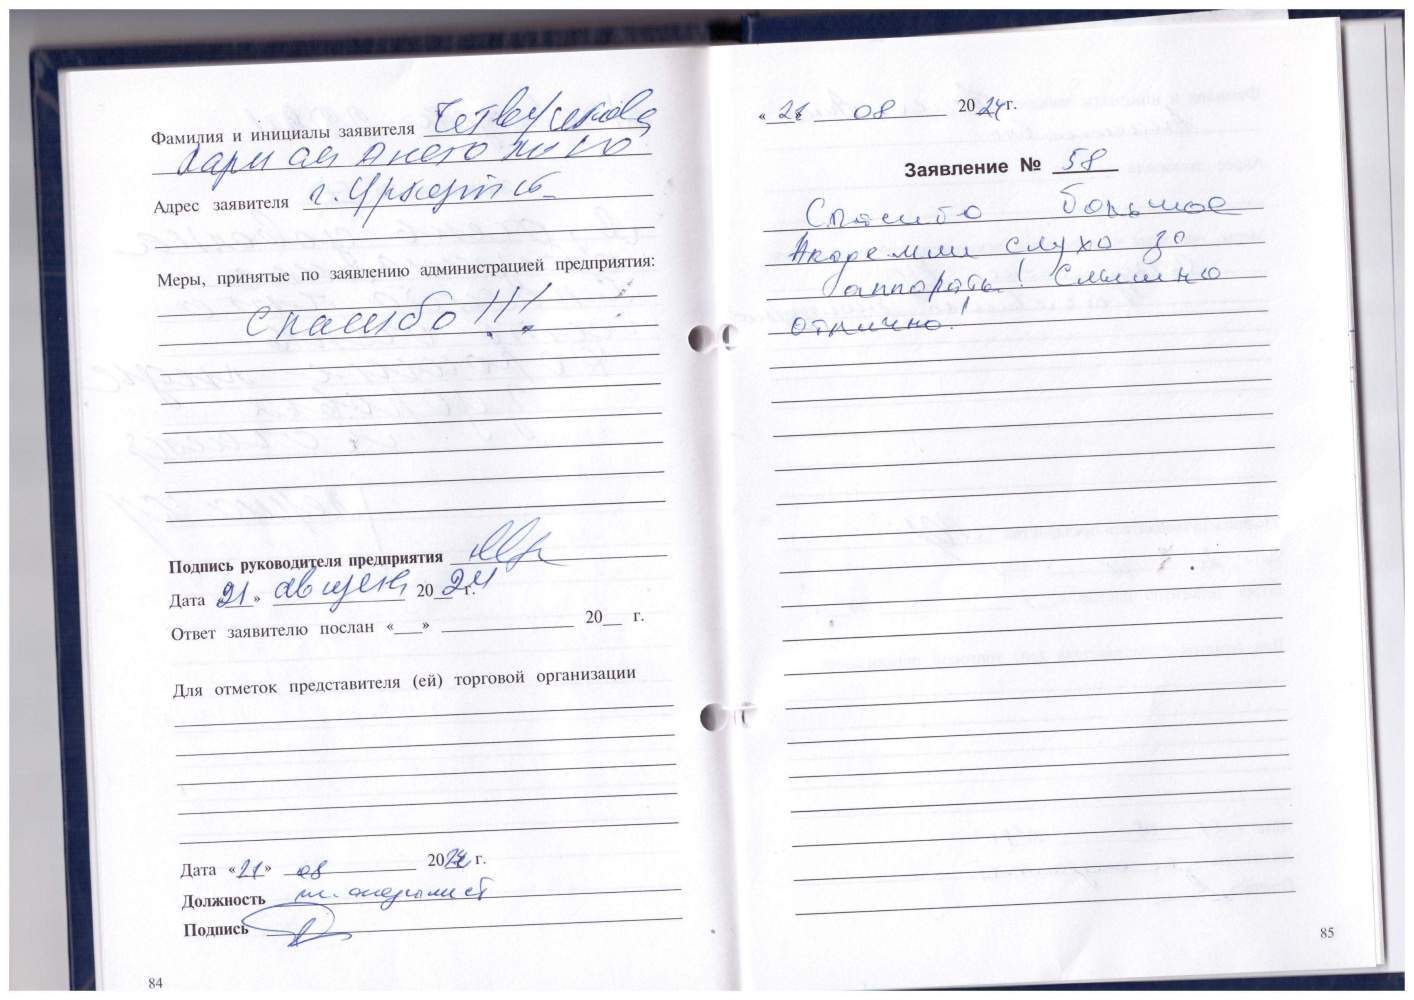 Фамилия и инициалы заявителя
Адрес заявителя г.
Меры, принятые по заявлению администрацией предприятия:
Спасибо!!!
Подпись руководителя предприятия
Дата 21 » августа 2024 г.
Ответ заявителю послан «___» ___ 20__ г.
Для отметок представителя (ей) торговой организации
Дата «21» 08 2024 г.
Должность
Подпись
84
« 21 » 08 2024 г.
Заявление № 58
Спасибо большое
Академии слуха за
аппараты! Слышно
отлично!
85